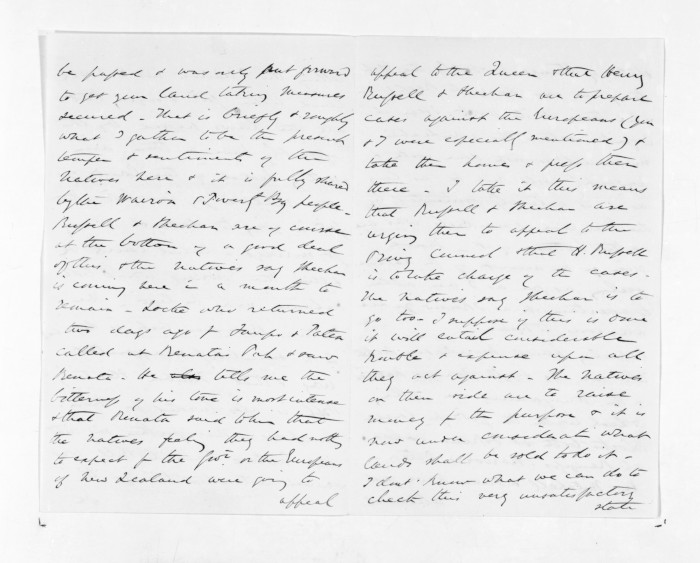 be passed & was only put forward
to get your land taking measures
secured - That is briefly & roughly
what I gather to be the present
temper & sentiments of the
Natives here & it is fully shared
by the Wairoa & Poverty Bay people -
Russell & Sheehan are of course
at the bottom of a good deal
of this, & the natives say Sheehan
is coming here in a month to
remain - Locke who returned
two days ago fr Taupo & Patea
called at Renata's Pah & saw
Renata - He tells me the
bitterness of his tone is most intense
& that Renata said to him that
the natives feeling they had nothg
to expect fr the Govt or the Europeans
of New Zealand were going to
appeal
appeal to the Queen & that Henry
Russell & Sheehan are to prepare
cases against the Europeans (you
& I were especially mentioned) &
take them home & press them
there - I take it this means
that Russell & Sheehan are
urging them to appeal to the
Privy Council & that H. Russell
is to take charge of the cases -
The natives say Sheehan is to
go too - I suppose if this is done
it will entail considerable
trouble & expense upon all
they act against - The Natives
on their side are to raise
money fr the purpose & it is
now under considerat what
lands shall be sold to do it -
I dont know what we can do to
check this very unsatisfactory
state